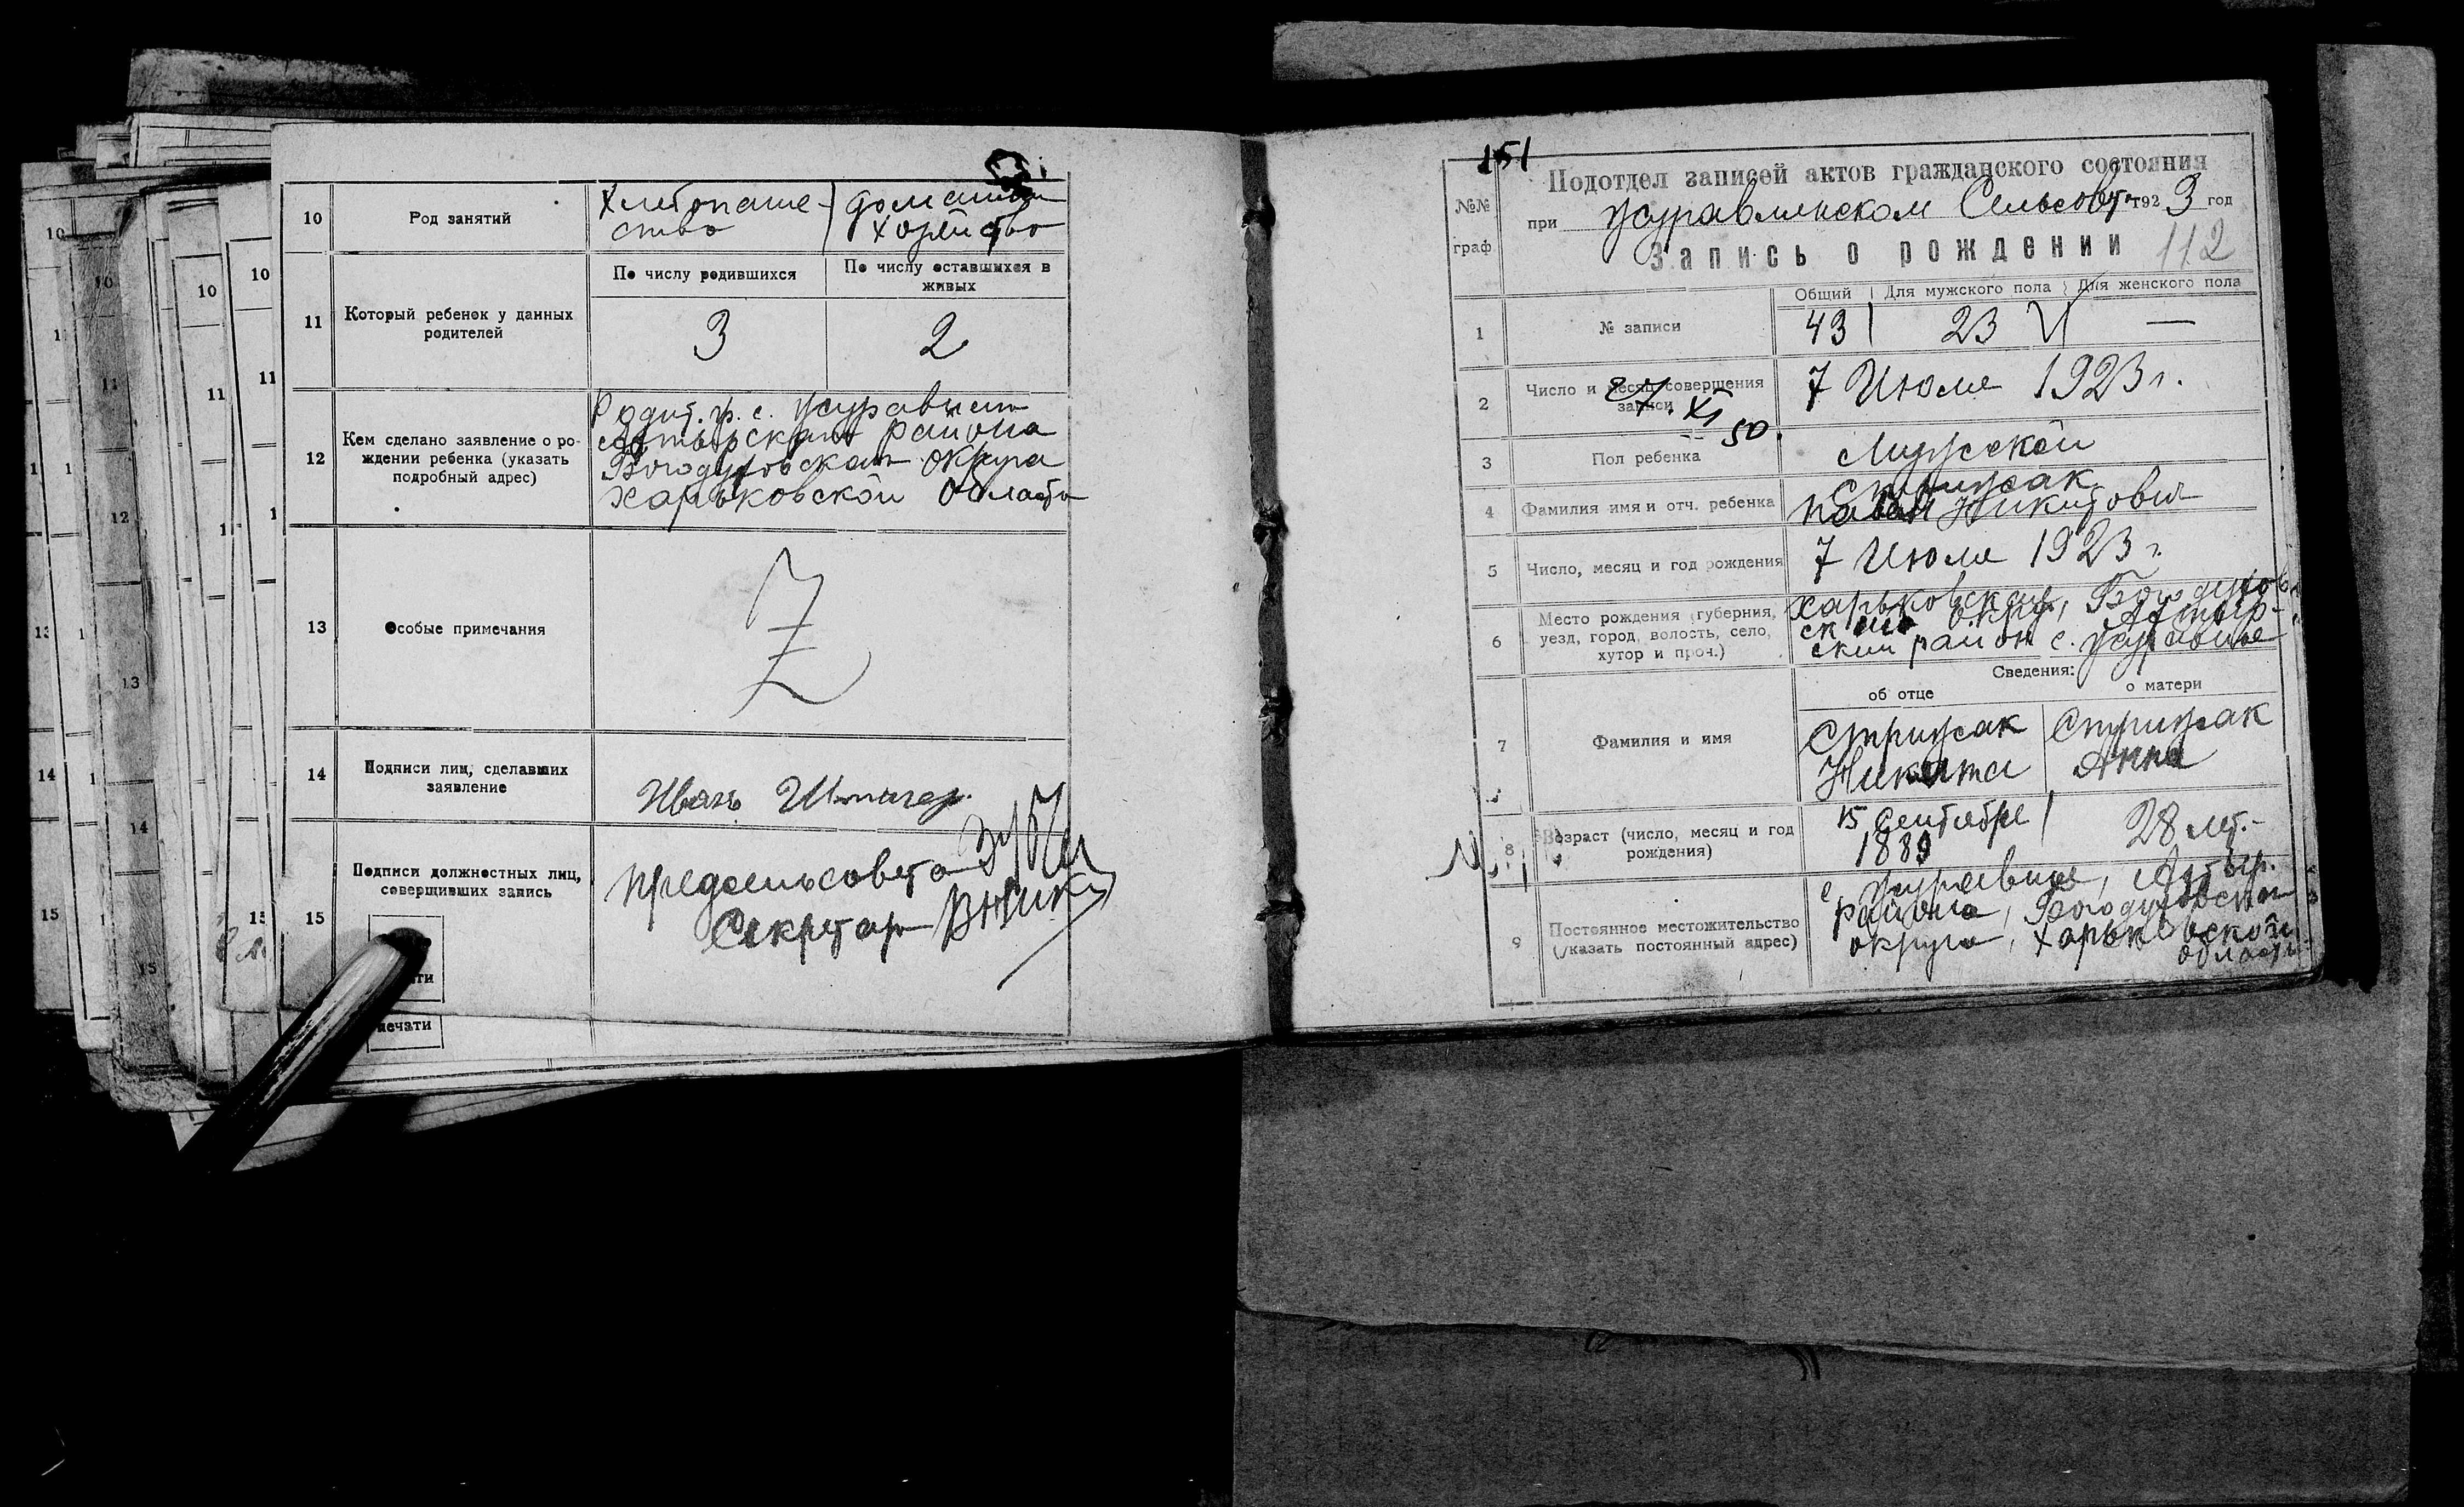 10
Род занятий
Хлебопаше-
ство
домашн
хозяйство
11
Который ребенок у данных
родителей
По числу родившихся
По числу оставшихся в
живых
3
2
12
Кем сделано заявление о ро-
ждении ребенка (указать
подробный адрес)
района
Богодуховскаго округа
Харьковской Области
13
Особые примечания
14
Подписи лиц, сделавших
заявление
Иванъ
15
Подписи должностных лиц,
совершивших запись
предсельсовета
Секретар
печати
151
№№
граф.
Подотдел записей актов гражданского состояния
при Журавлинском Сельсовет 1923 год
Запись о рождении
112
1
№ записи
Общий
Для мужского пола
Для женского пола
43
23
—
2
Число и месяц совершения
записи
7 Июля 1923 г.
3
Пол ребенка
Мужской
4
Фамилия имя и отч. ребенка
Стрижак
Никитович
5
Число, месяц и год рождения
7 Июля 1923 г.
6
Место рождения (губерния,
уезд, город, волость, село,
хутор и проч.)
Харьковская, Богодухов
ский район с. Журавное
Сведения:
об отце
о матери
7
Фамилия и имя
Стрижак
Никита
Стрижак
Анна
8
Возраст (число, месяц и год
рождения)
15 Сентября
1889
28 лет.-
9
Постоянное местожительство
(указать постоянный адрес)
с Журавное, Ахтыр.
района, Богодуховского
округа, Харьковской
области